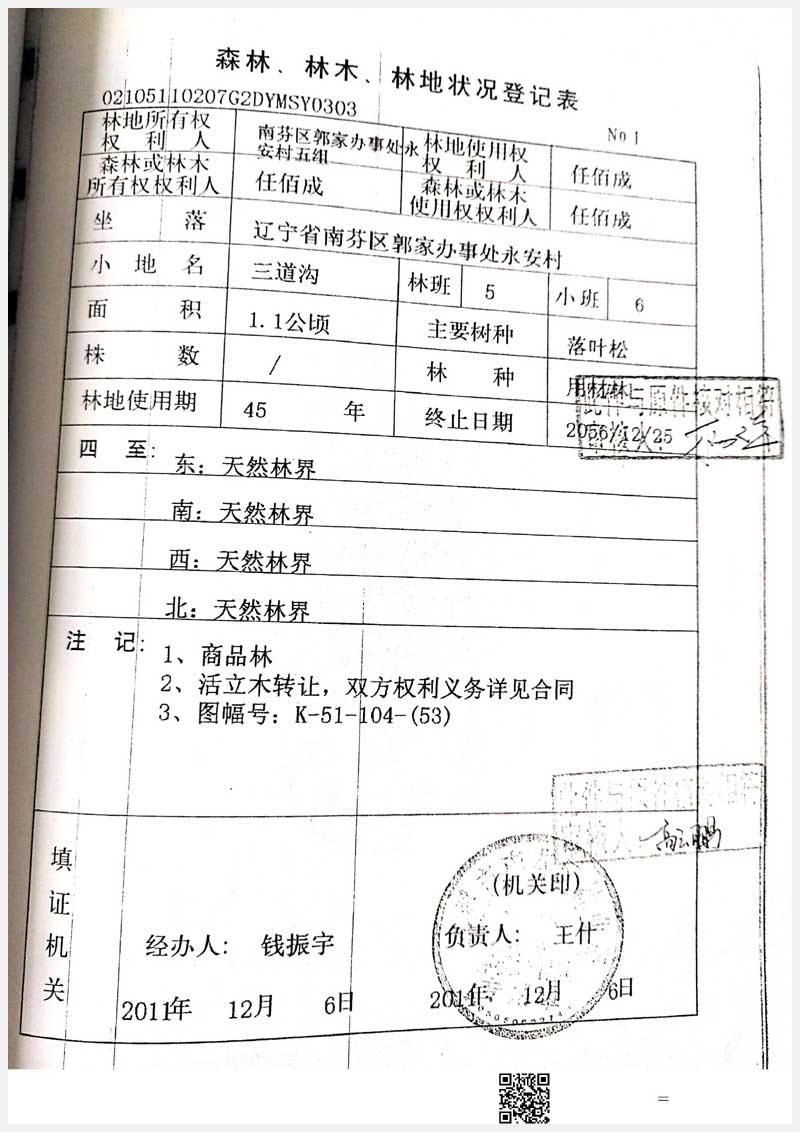 森林、林木、林地状况登记表
02105110207G2DYMSY0303
No 1
林地所有权
权利人
南芬区郭家办事处永
安村五组
林地使用权
权利人
任佰成
森林或林木
所有权权利人
任佰成
森林或林木
使用权权利人
任佰成
坐落
辽宁省南芬区郭家办事处永安村
小地名
三道沟
林班
5
小班
6
面积
1.1公顷
主要树种
落叶松
株数
/
林种
用材林
林地使用期
45 年
终止日期
2056/12/25
此件与原件核对相符
审核人:
四至:
东: 天然林界
南: 天然林界
西: 天然林界
北: 天然林界
注记:
1、商品林
2、活立木转让，双方权利义务详见合同
3、图幅号: K-51-104-(53)
此件与原件核对相符
审核人:
填证机关
(机关印)
经办人: 钱振宇
负责人: 王什
2011年 12月 6日
2011年 12月 6日
=